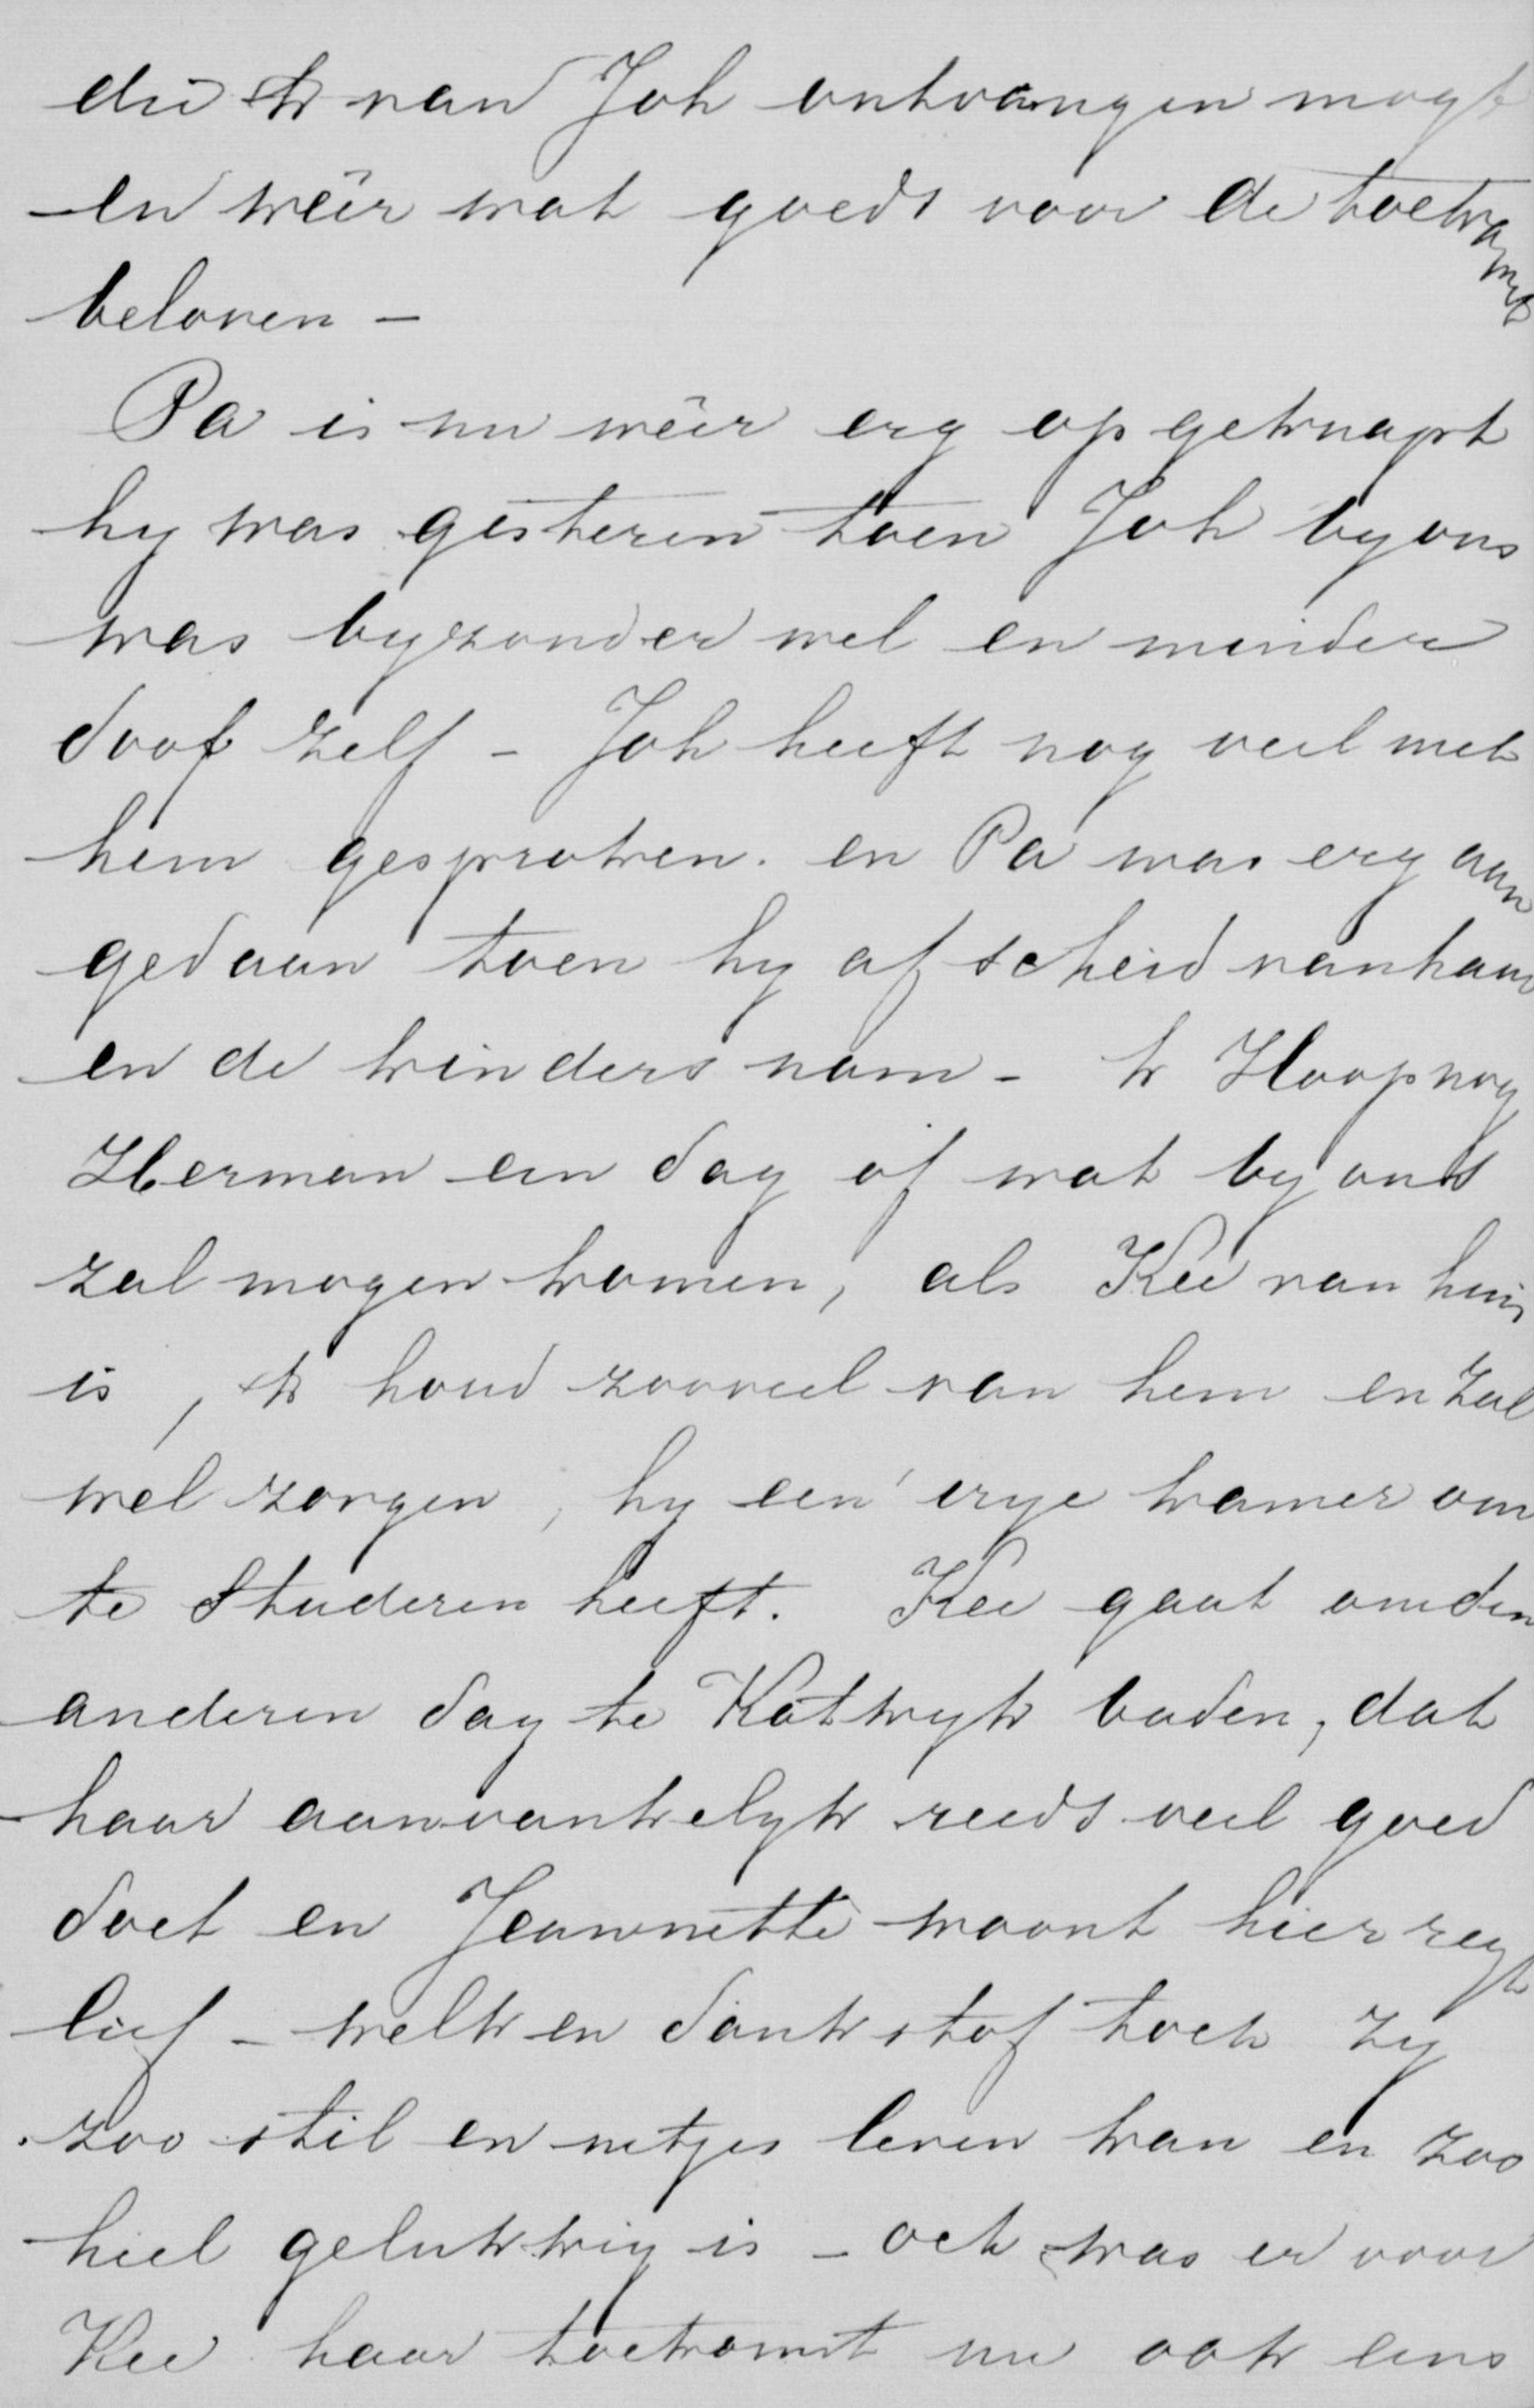 die ik van Joh ontvangen mogt
en wêer wat goeds voor de toekomst
beloven -
Pa is nu wêer erg opgeknapt
hy was gisteren toen Joh by ons
was byzonder wel en minder
doof zelf - Joh heeft nog veel met
hem gesproken. en Pa was erg aan
gedaan toen hy afscheid van haar
en de kinders nam - ik Hoop nog
Herman een dag of wat by ons
zal mogen komen, als Kee van huis
is, ik houd zooveel van hem en zal
wel zorgen, hy een erge kamer om
te Studeren heeft. Kee gaat om den
anderen dag te Katwyk baden, dat
haar aanvankelyk reeds veel goed
doet en Jeannette woont hier regt
lief - welk en dankstof toch zy
zoo stil en netjes leven kan en zoo
heel gelukkig is - och was er voor
Kee haar toekomst nu ook eens